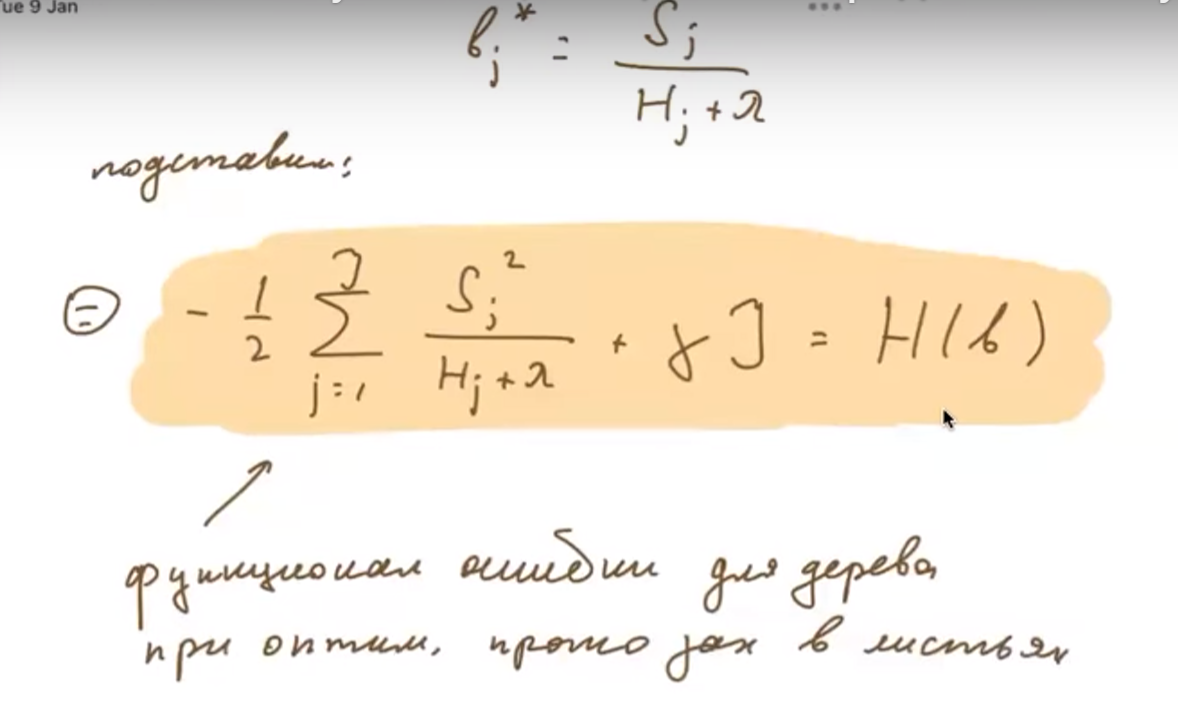 ue 9 Jan
b_j^* = S_j / (H_j + λ)
подставим:
⊜ - 1/2 ∑_{j=1}^{J} S_j^2 / (H_j + λ) + γJ = H(b)
функционал ошибки для дерева
при оптим. прогнозах в листьях